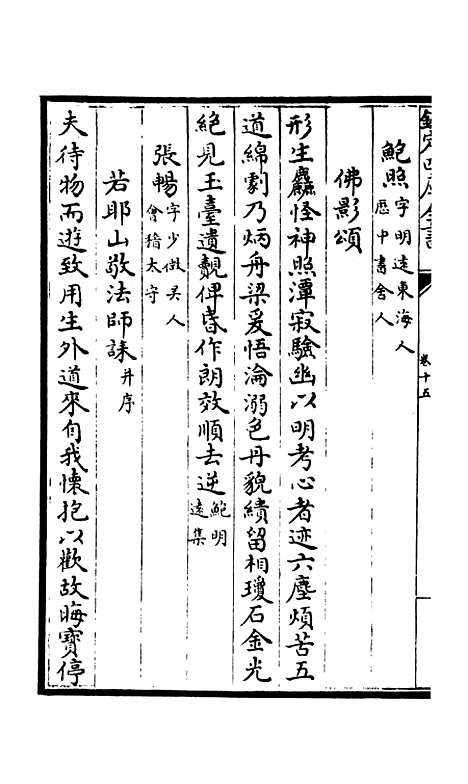 欽定四庫全書
卷十五
鮑照字明遠東海人歷中書舍人
佛影頌
形生麤怪神照潭寂驗幽以明考心者迹六塵煩苦五
道綿劇乃炳舟梁爰悟淪溺色丹貌績留相瓊石金光
絶見玉臺遺覿俾昏作朗效順去逆鮑明遠集
張暢字少微吳人會稽太守
若耶山敬法師誄并序
夫待物而遊致用生外道來自我懷抱以歡故晦寶停